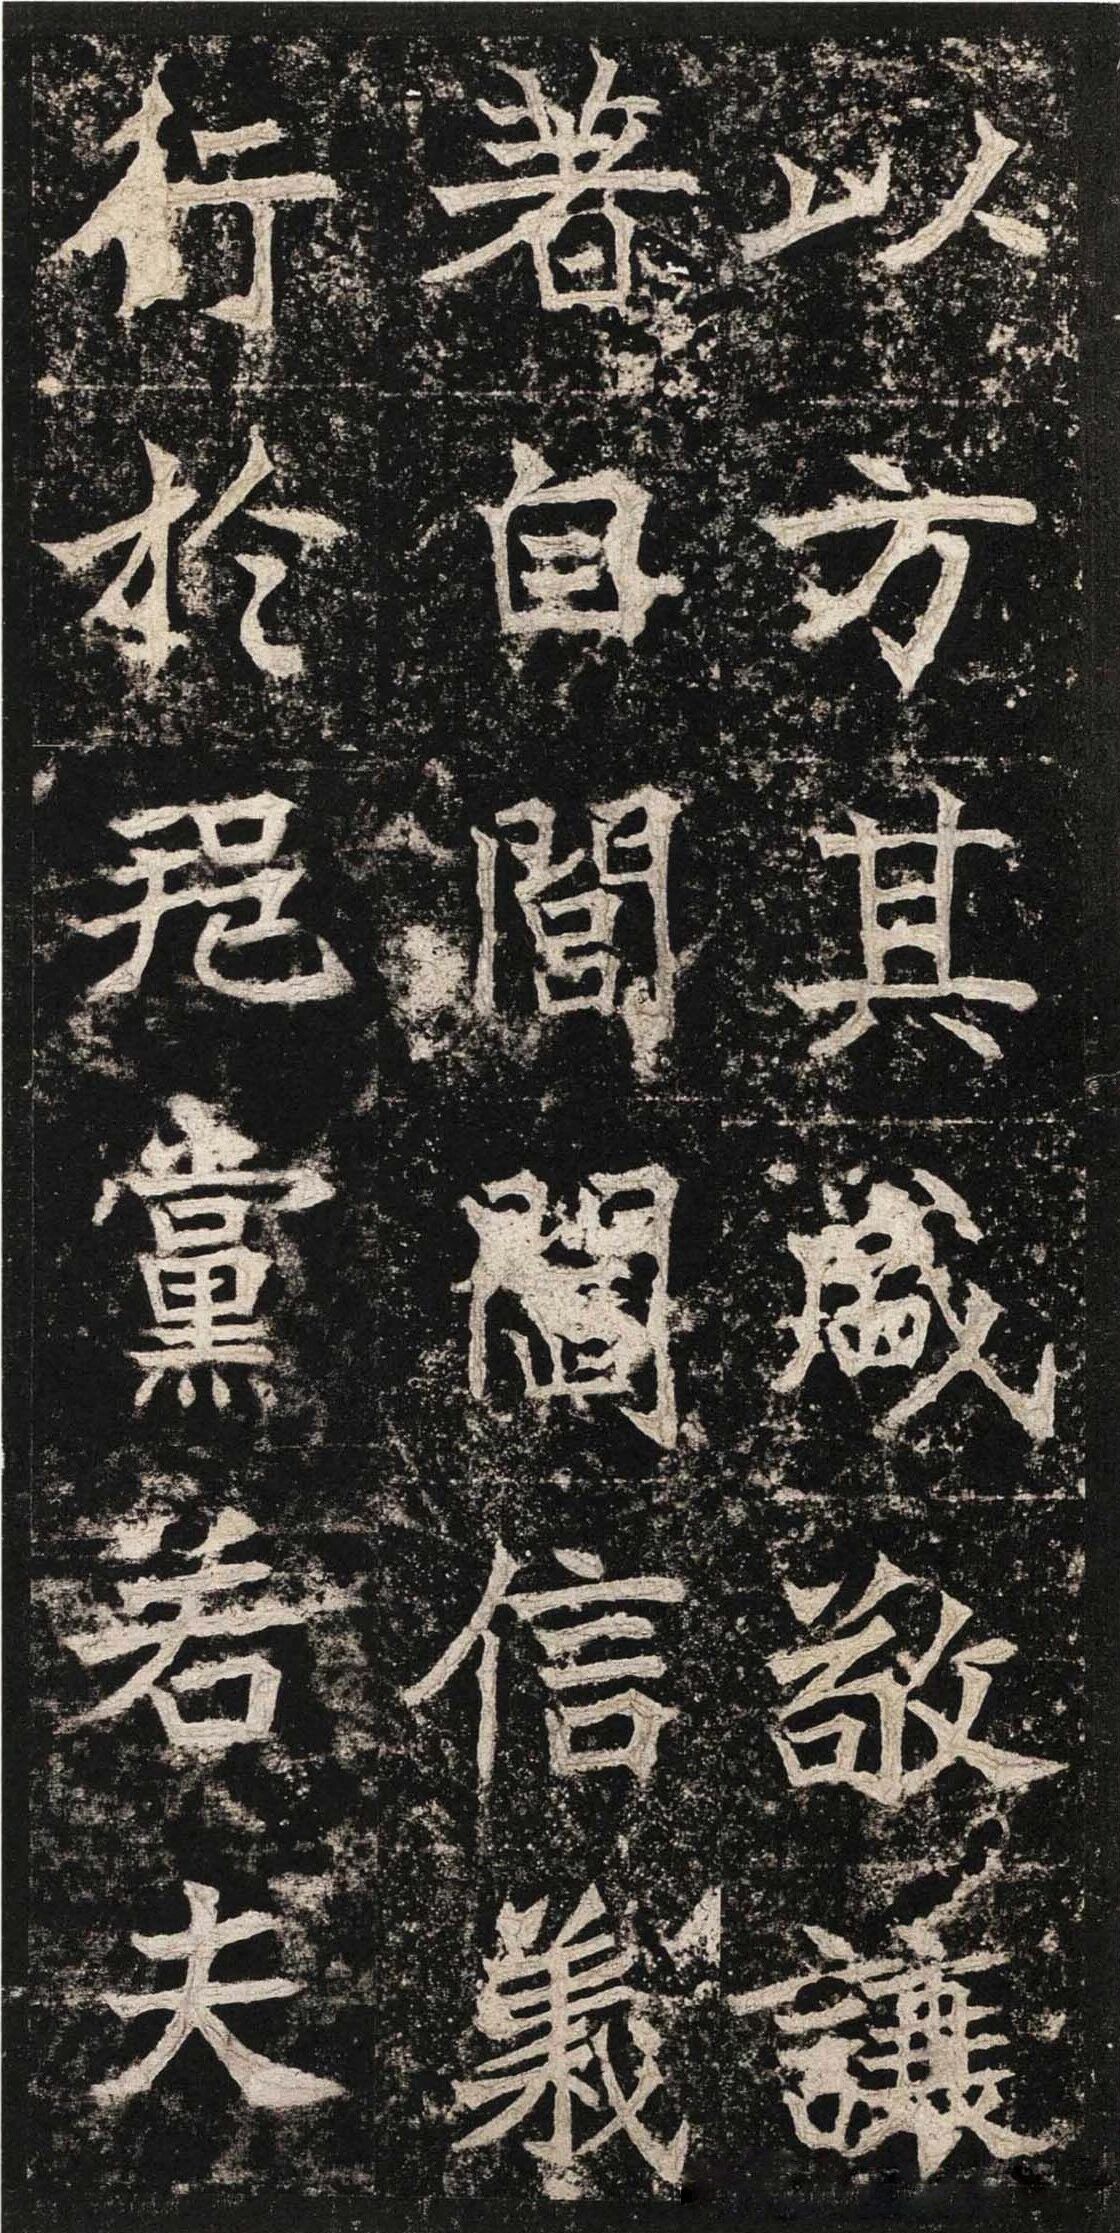 以方其盛敬讓
著自閭閻信義
行於邦黨若夫